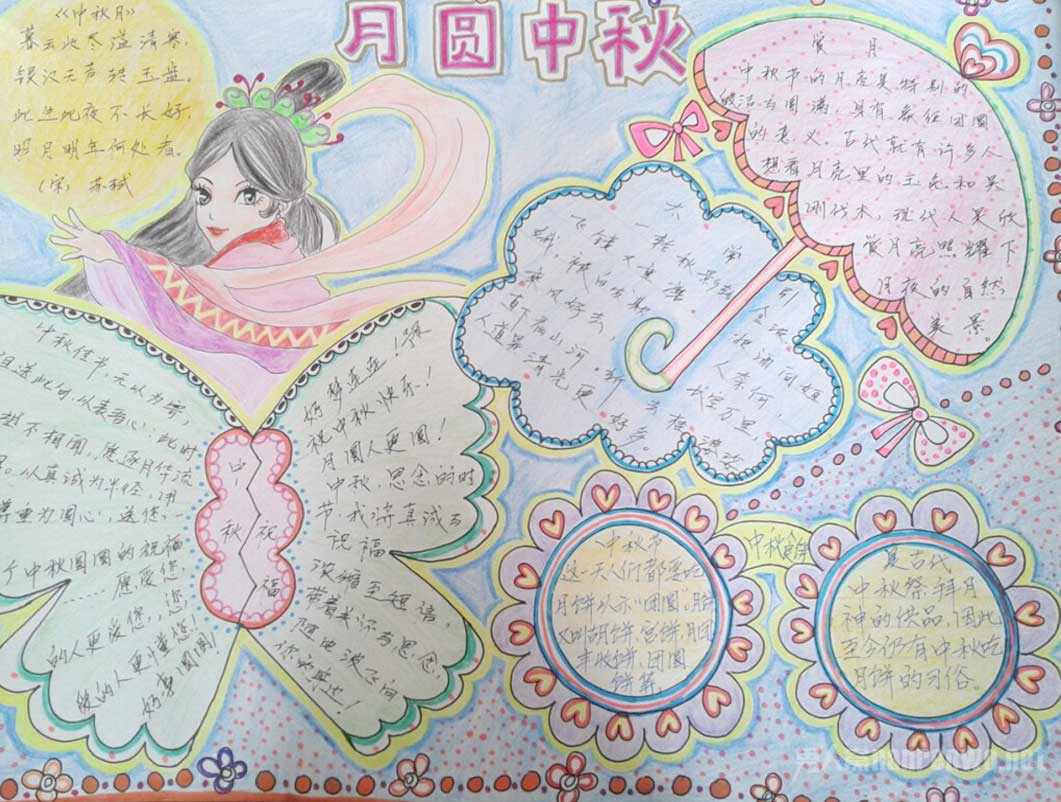 月圆中秋
《中秋月》
暮云收尽溢清寒,
银汉无声转玉盘。
此生此夜不长好,
明月明年何处看。
(宋)苏轼
赏月
中秋节的月亮是特别的
皎洁与圆满,具有象征团圆
的意义。古代就有许多人
想看月亮里的玉兔和吴
刚伐木,现代人更欣
赏月亮照耀下
月夜的自然
美景。
中秋佳节,无以为寄,
且送此句,以表吾心:此时
相闻,愿逐月华流
以真诚为半径,用
尊重为圆心,送您
个中秋圆圆的祝福
愿爱您
的人更爱您,您
懂的人更懂您!
好事圆圆!
中秋祝福
好梦连连!
祝中秋快乐!
月圆人更圆!
中秋,思念的时
节,我将真诚的
祝福
浓缩至短语,
带着关怀与思念,
随电波飞向
你的身边!
一轮秋影转
金波
飞镜又重磨
把酒问姮
被白发欺
人奈何
乘风好去
长空万里
直下看山河
斫去桂
婆娑
人道是清光更
多。
中秋食俗
中秋节
这一天人们都要吃
月饼以示“团圆”。月饼
又叫胡饼,宫饼,月团
丰收饼,团圆
饼等。
是古代
中秋祭拜月
神的供品,因此
至今仍有中秋吃
月饼的习俗。